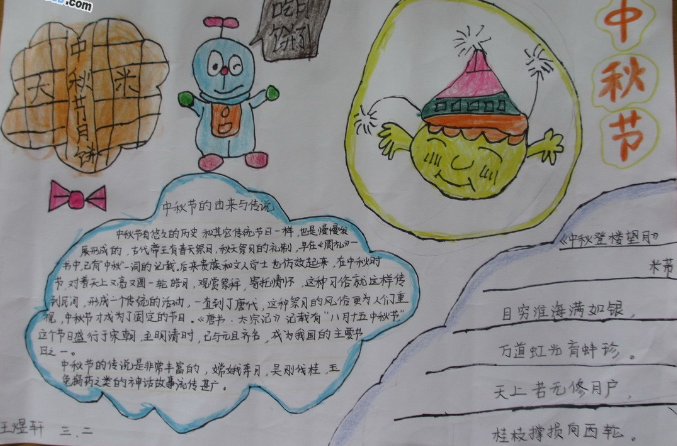 .com
中秋节月饼
大 米
吃月
饼了
中
秋
节
中秋节的由来与传说
中秋节有悠久的历史 和其它传统节日一样，也是慢慢发
展形成的，古代帝王有春天祭日，秋天祭月的礼制，早在《周礼》一
书中，已有"中秋"一词的记载。后来贵族和文人学士也仿效起来，在中秋时
节，对着天上又亮又圆一轮皓月，观赏祭拜，寄托情怀，这种习俗就这样传
到民间，形成一个传统的活动，一直到了唐代，这种祭月的风俗更为人们重
视，中秋节才成为了固定的节日。《唐书·太宗记》记载有"八月十五中秋节"
这个节日盛行于宋朝，至明清时，已与元旦齐名，成为我国的主要节
日之一。
中秋节的传说是非常丰富的，嫦娥奔月，吴刚伐桂，玉
兔捣药之类的神话故事流传甚广。
《中秋登楼望月》
米芾
目穷淮海满如银，
万道虹光育蚌珍。
天上若无修月户，
桂枝撑损向西轮。
王煜轩 三、二